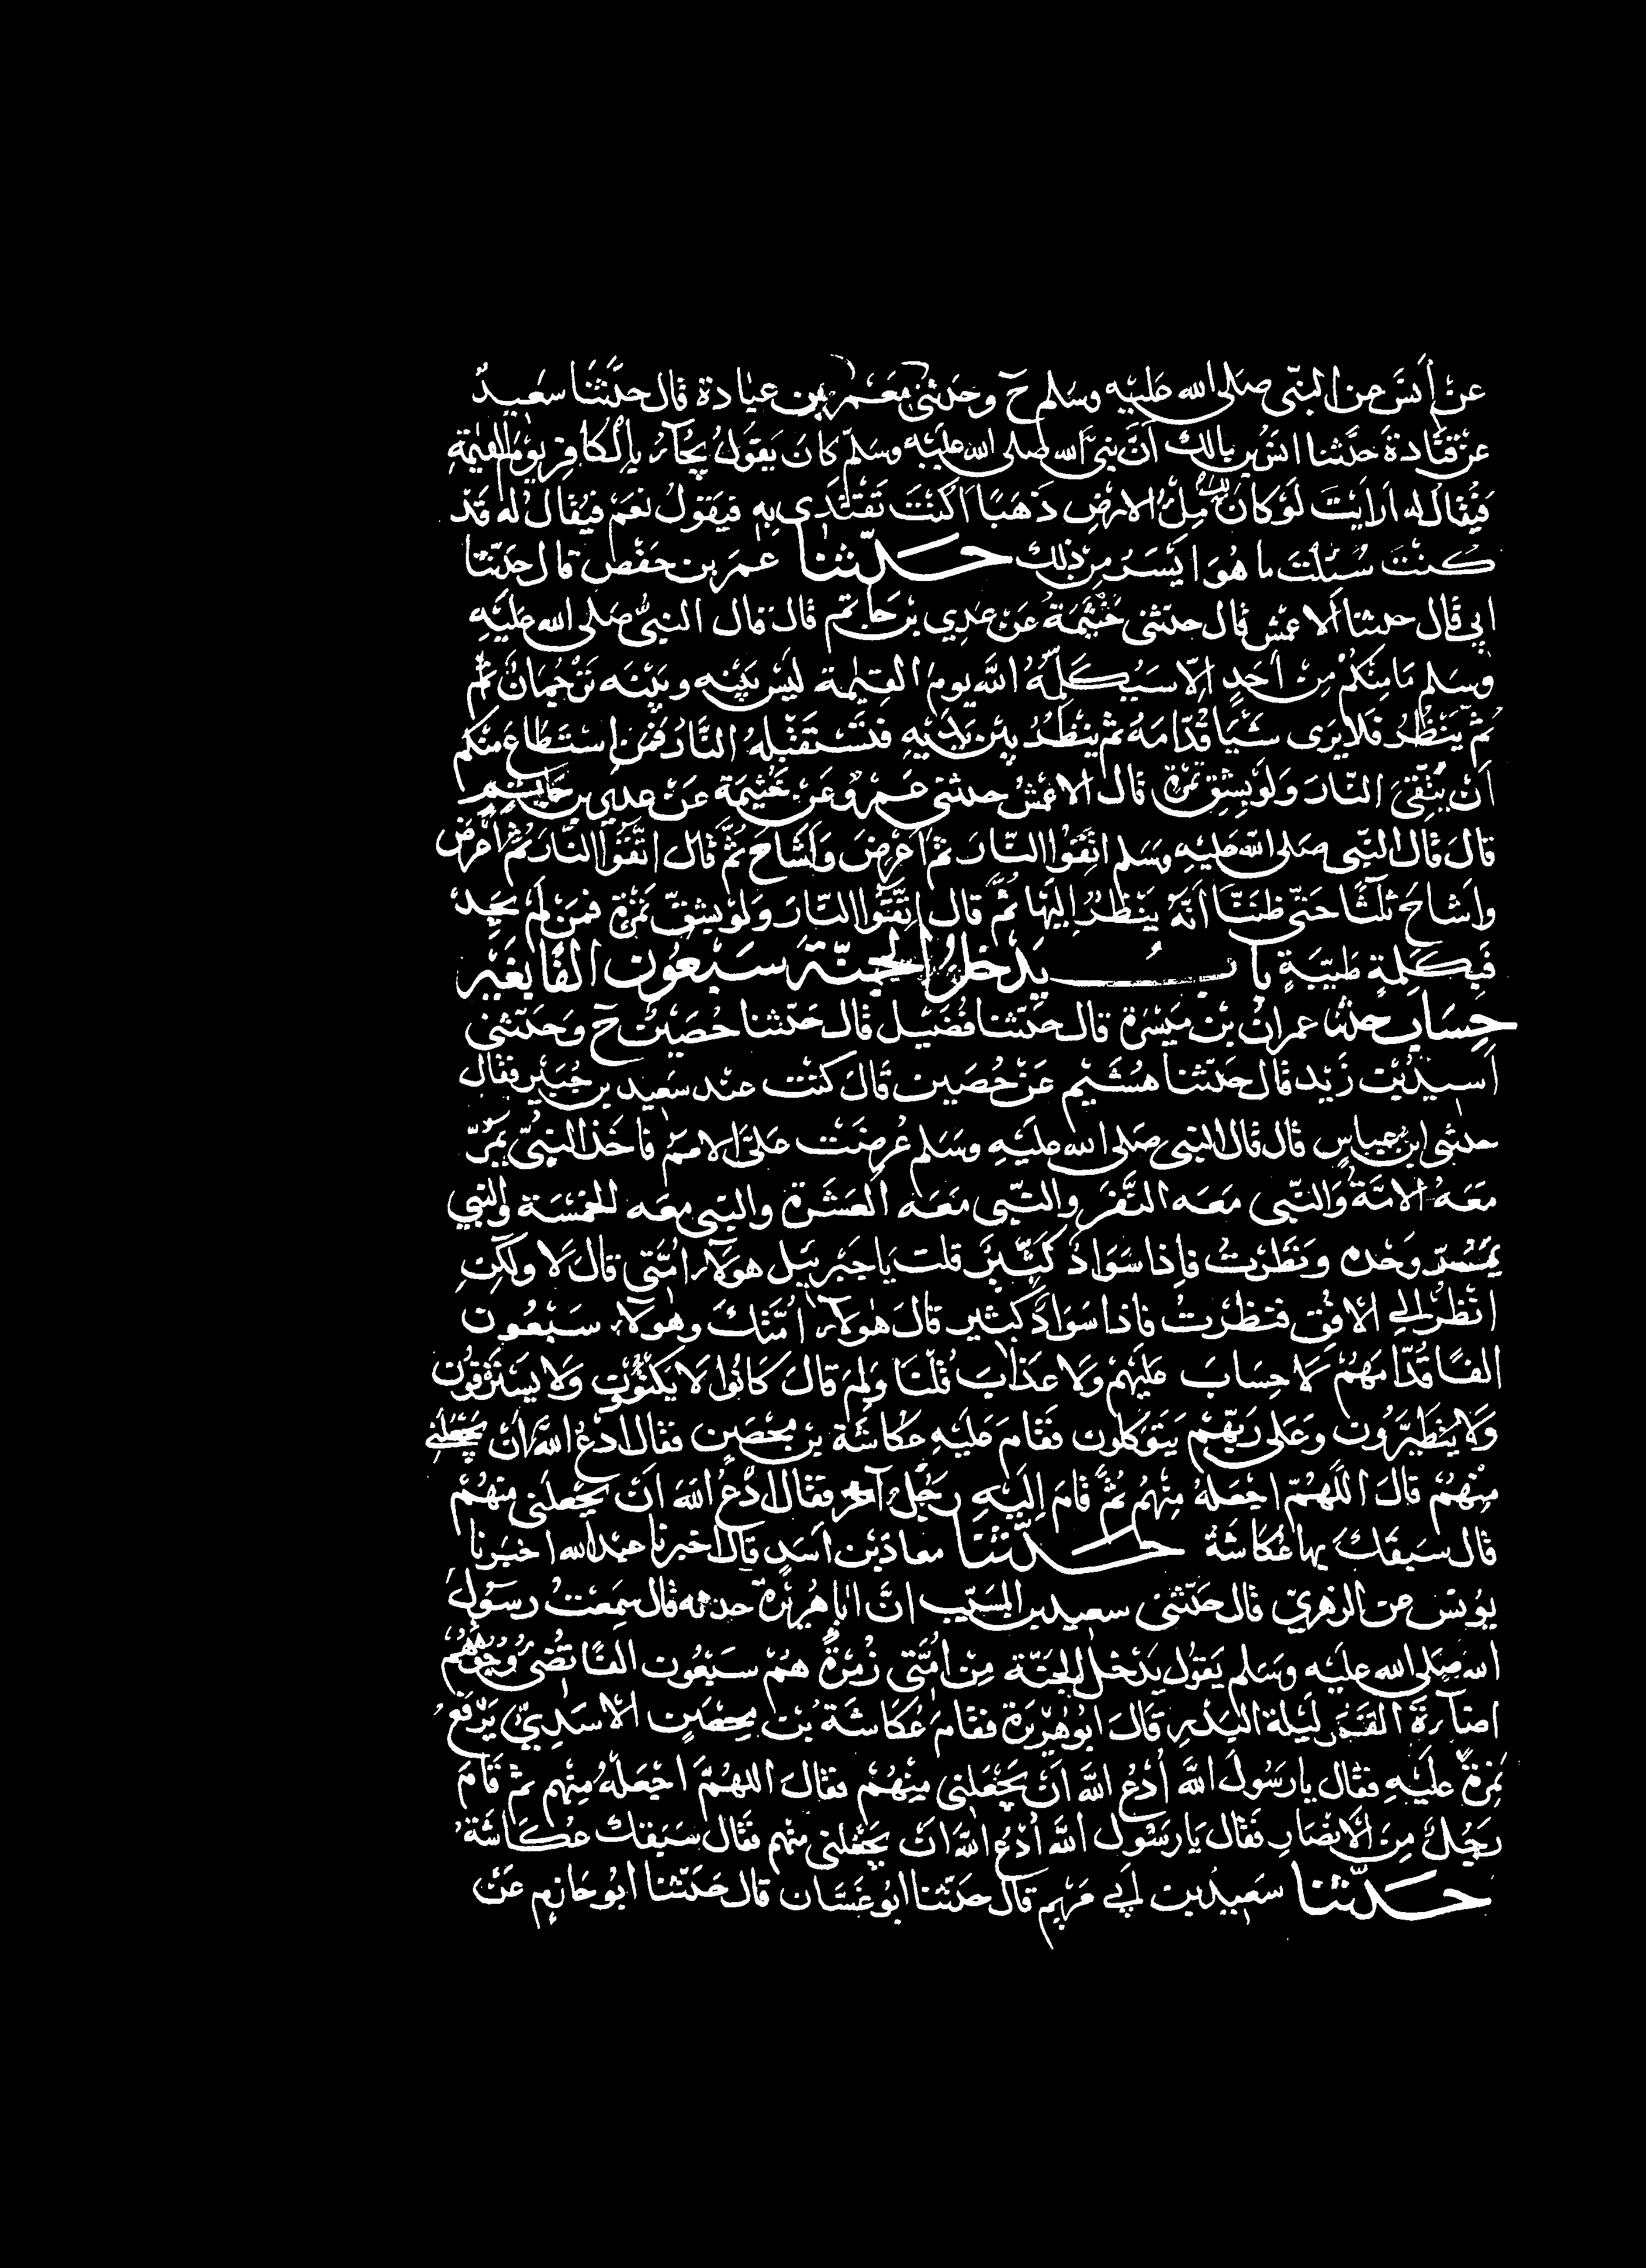 عن أنس عن النبي صلى الله عليه وسلم ح وحدثني معمر بن عبادة قال حدثنا سعيد
عن قتادة حدثنا انس بن مالك أن نبي الله صلى الله عليه وسلم كان يقول يجاء بالكافر يوم القيمة
فيقال له ارايت لو كان لك ملء الارض ذهبا اكنت تفتدي به فيقول نعم فيقال له قد
كنت سئلت ما هو ايسر من ذلك حدثنا عمر بن حفص قال حدثنا
ابي قال حدثنا الاعمش قال حدثني خيثمة عن عدي بن حاتم قال قال النبي صلى الله عليه
وسلم ما منكم من أحد إلا سيكلمه الله يوم القيمة ليس بينه وبينه ترجمان ثم
ثم ينظر فلا يرى شيئا قدامه ثم ينظر بين يديه فتستقبله النار فمن استطاع منكم
أن يتقي النار ولو بشق تمرة قال الاعمش حدثني عمرو عن خيثمة عن عدي بن حاتم
قال قال النبي صلى الله عليه وسلم اتقوا النار ثم أعرض وأشاح ثم قال اتقوا النار ثم أعرض
واشاح ثلثا حتى ظننا أنه ينظر إليها ثم قال اتقوا النار ولو بشق تمرة فمن لم يجد
فبكلمة طيبة باب يدخل الجنة سبعون الفا بغير
حساب حدثنا عمران بن ميسرة قال حدثنا فضيل قال حدثنا حصين ح وحدثني
اسيد بن زيد قال حدثنا هشيم عن حصين قال كنت عند سعيد بن جبير فقال
حدثني ابن عباس قال قال النبي صلى الله عليه وسلم عرضت علي الامم فاخذ النبي يمر
معه الامة والنبي معه النفر والنبي معه العشرة والنبي معه الخمسة والنبي
يمر وحده ونظرت فإذا سواد كثير قلت يا جبريل هولاء امتي قال لا ولكن
انظر الي الافق فنظرت فاذا سواد كثير قال هولاء امتك وهولاء سبعون
الفا قدامهم لا حساب عليهم ولا عذاب قلنا ولم قال كانوا لا يكتوون ولا يسترقون
ولا يتطيرون وعلى ربهم يتوكلون فقام عليه عكاشة بن محصن فقال ادع الله أن يجعلني
منهم قال اللهم اجعله منهم ثم قام إليه رجل آخر فقال ادع الله ان يجعلني منهم
قال سبقك بها عكاشة حدثنا معاذ بن اسد قال اخبرنا عبد الله اخبرنا
يونس عن الزهري قال حدثني سعيد بن المسيب ان ابا هريرة حدثه قال سمعت رسول
الله صلى الله عليه وسلم يقول يدخل الجنة من امتي زمرة هم سبعون الفا تضئ وجوههم
اضاءة القمر ليلة البدر قال ابو هريرة فقام عكاشة بن محصن الاسدي يرفع
نمرة عليه فقال يا رسول الله أدع الله أن يجعلني منهم فقال اللهم اجعله منهم ثم قام
رجل من الانصار فقال يا رسول الله أدع الله ان يجعلني منهم فقال سبقك عكاشة
حدثنا سعيد بن ابي مريم قال حدثنا ابو غسان قال حدثنا ابو حازم عن